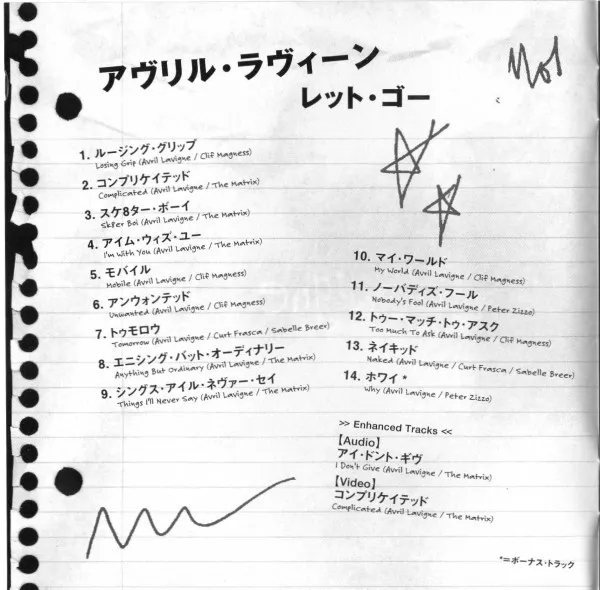 アヴリル・ラヴィーン
レット・ゴー
1. ルージング・グリップ
Losing Grip (Avril Lavigne / Clif Magness)
2. コンプリケイテッド
Complicated (Avril Lavigne / The Matrix)
3. スケ8ター・ボーイ
Sk8er Boi (Avril Lavigne / The Matrix)
4. アイム・ウィズ・ユー
I'm With You (Avril Lavigne / The Matrix)
5. モバイル
Mobile (Avril Lavigne / Clif Magness)
6. アンウォンテッド
Unwanted (Avril Lavigne / Clif Magness)
7. トゥモロウ
Tomorrow (Avril Lavigne / Curt Frasca / Sabelle Breer)
8. エニシング・バット・オーディナリー
Anything But Ordinary (Avril Lavigne / The Matrix)
9. シングス・アイル・ネヴァー・セイ
Things I'll Never Say (Avril Lavigne / The Matrix)
10. マイ・ワールド
My World (Avril Lavigne / Clif Magness)
11. ノーバディズ・フール
Nobody's Fool (Avril Lavigne / Peter Zizzo)
12. トゥー・マッチ・トゥ・アスク
Too Much To Ask (Avril Lavigne / Clif Magness)
13. ネイキッド
Naked (Avril Lavigne / Curt Frasca / Sabelle Breer)
14. ホワイ *
Why (Avril Lavigne / Peter Zizzo)
>> Enhanced Tracks <<
【Audio】
アイ・ドント・ギヴ
I Don't Give (Avril Lavigne / The Matrix)
【Video】
コンプリケイテッド
Complicated (Avril Lavigne / The Matrix)
*=ボーナス・トラック